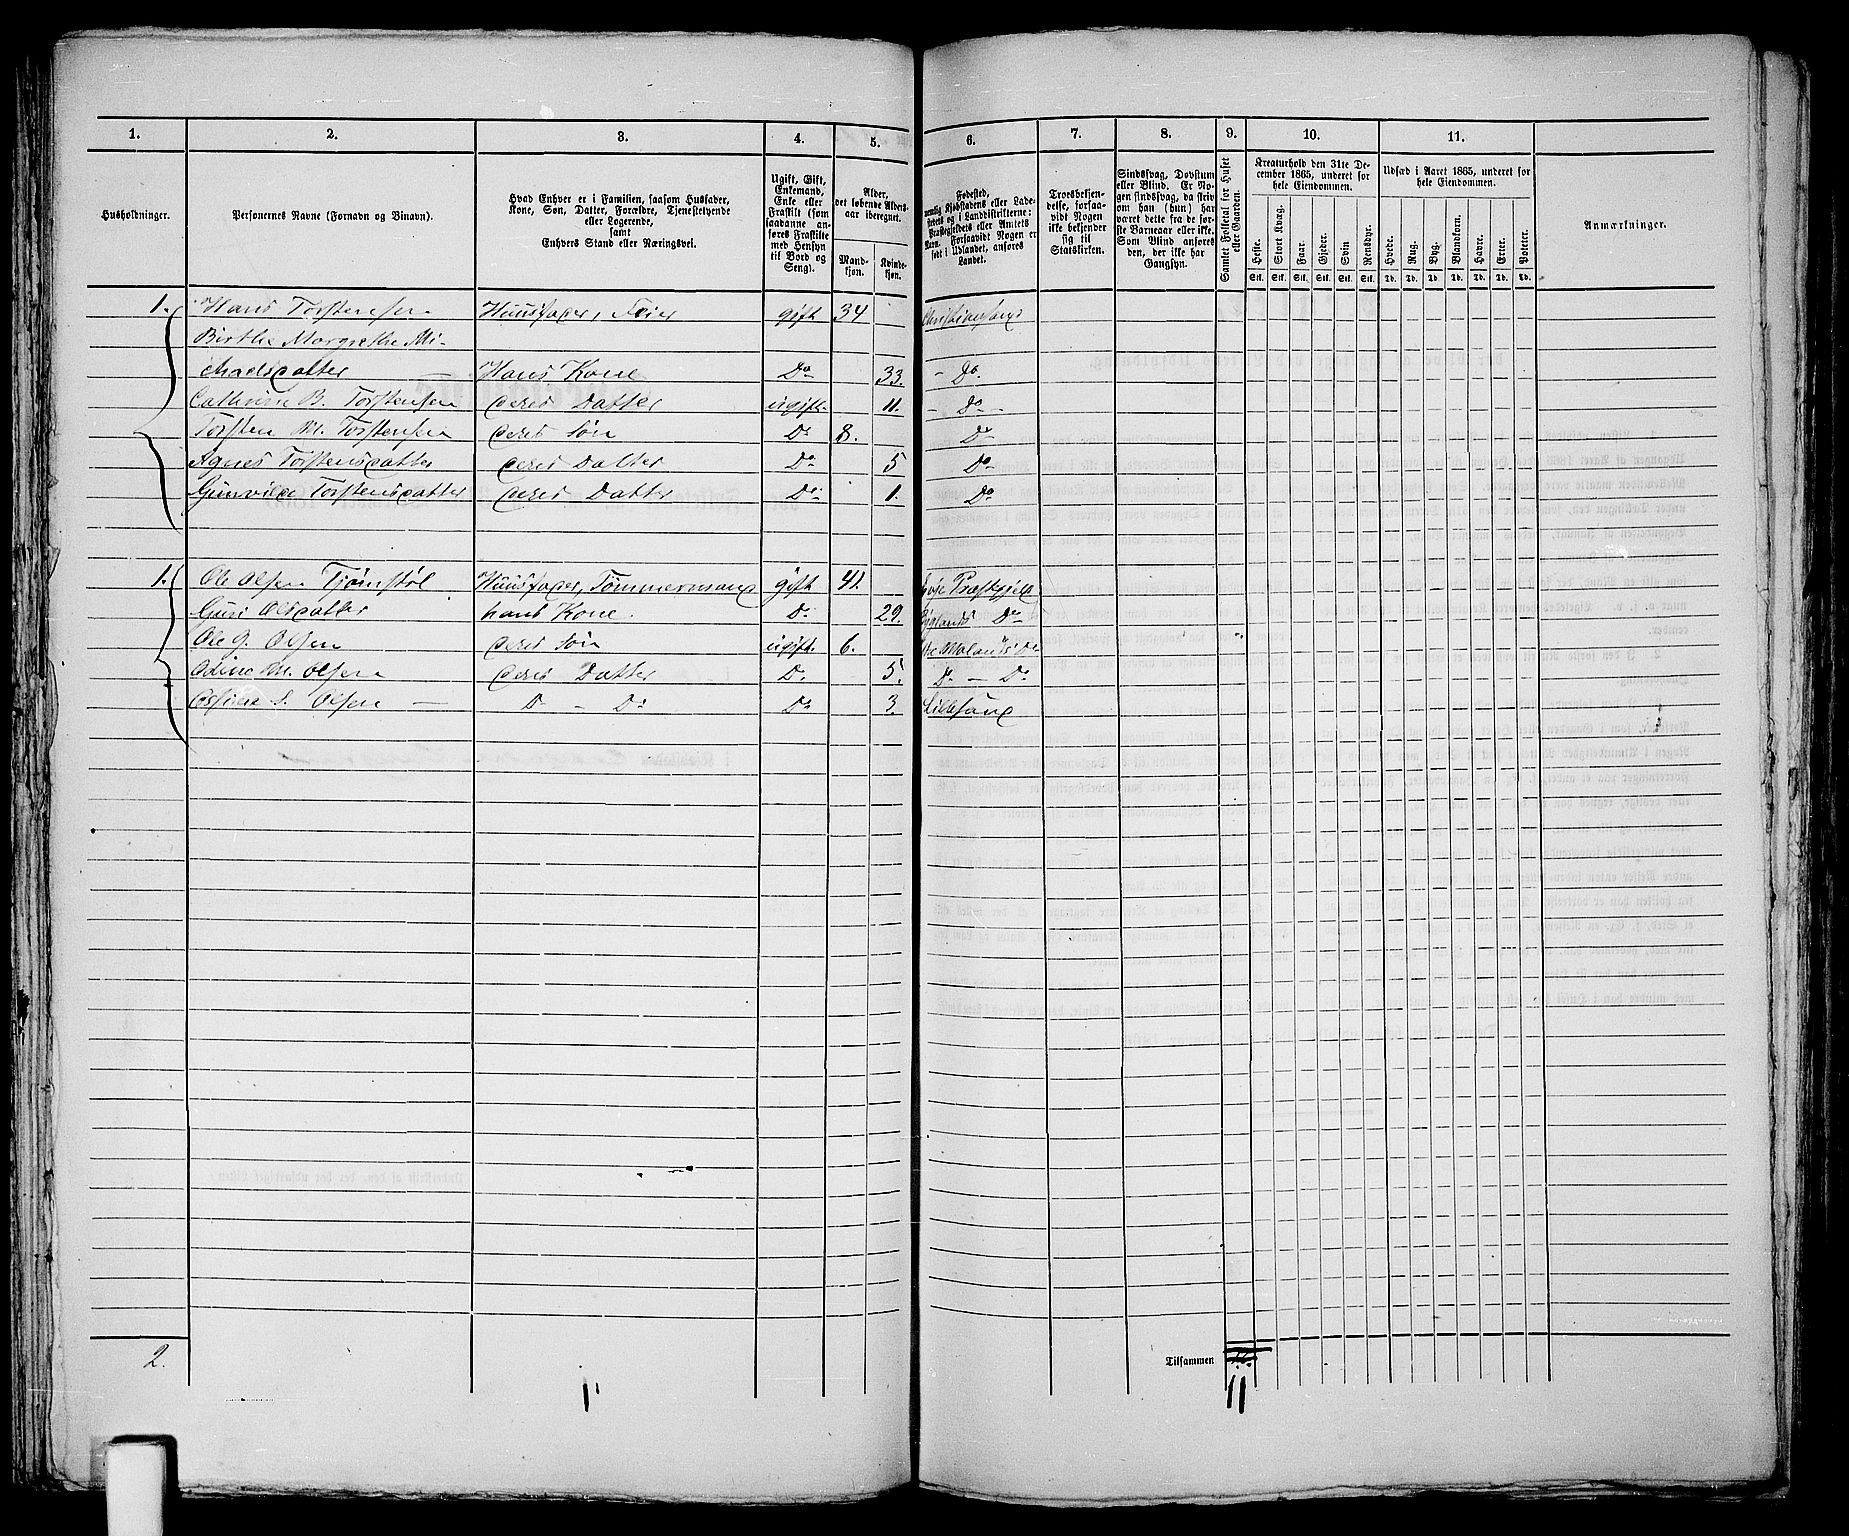 1. 2. 3. 4. 5. 6. 7. 8. 9. 10. 11.
Husholdninger.
Personernes Navne (Fornavn og Binavn).
Hvad Enhver er i Familien, saasom Husfader,
Kone, Søn, Datter, Forældre, Tjenestetyende
eller Logerende,
samt
Enhvers Stand eller Næringsvei.
Ugift, Gift,
Enkemand,
Enke eller
Fraskilt (som
saadanne an-
føres Fraskilte
med Hensyn
til Bord og
Seng).
Alder,
det løbende Alders-
aar iberegnet.
Mand-
kjøn.
Kvinde-
kjøn.
Fødested,
nemlig Kjøbstadens eller Lade-
stedets og i Landdistrikterne:
Præstegjeldets eller Amtets
Navn. Forsaavidt Nogen er
født i Udlandet, anføres
Landet.
Troesbekjen-
delse, forsaa-
vidt Nogen
ikke bekjender
sig til
Statskirken.
Sindssvag, Døvstum
eller Blind. Er No-
gen sindssvag, da skriv
om han (hun) har
været dette fra de før-
ste Barneaar eller ikke.
Som Blind anføres
den, der ikke har
Gangsyn.
Samlet Folketal for Huset
eller Gaarden.
Kreaturhold den 31te De-
cember 1865, underet for
hele Eiendommen.
Heste. Stort Kvæg. Faar. Gjeder. Svin Rensdyr.
Stk. Stk. Stk. Stk. Stk. Stk.
Udsæd i Aaret 1865, underet for
hele Eiendommen.
Hvede. Rug. Byg. Blandkorn. Havre. Erter. Poteter.
Td. Td. Td. Td. Td. Td. Td.
Anmærkninger.
1. Hans Torstensen Huusfader, Feier gift 34 Christiansand
Birthe Margrethe Mi-
chaelsdatter Hans Kone Do 33. - Do.
Cathrine B. Torstensen deres Datter ugift. 11. - Do -
Torsten M. Torstensen deres Søn Do 8. Do
Agnes Torstensdatter deres Datter Do 5 Do
Gunvilde Torstensdatter deres Datter Do 1. Do
1. Ole Olsen Tjømstøl Huusfader, Tømmermand gift 41. Præstegjeld
Guri Olsdatter hans Kone. Do 29. Byglands Do
Ole G. Olsen deres Søn ugift. 6.
M. Olsen deres Datter Do 5. Do - Do
S. Olsen - D - Do Do 3. Lillesand
2.
Tilsammen
11